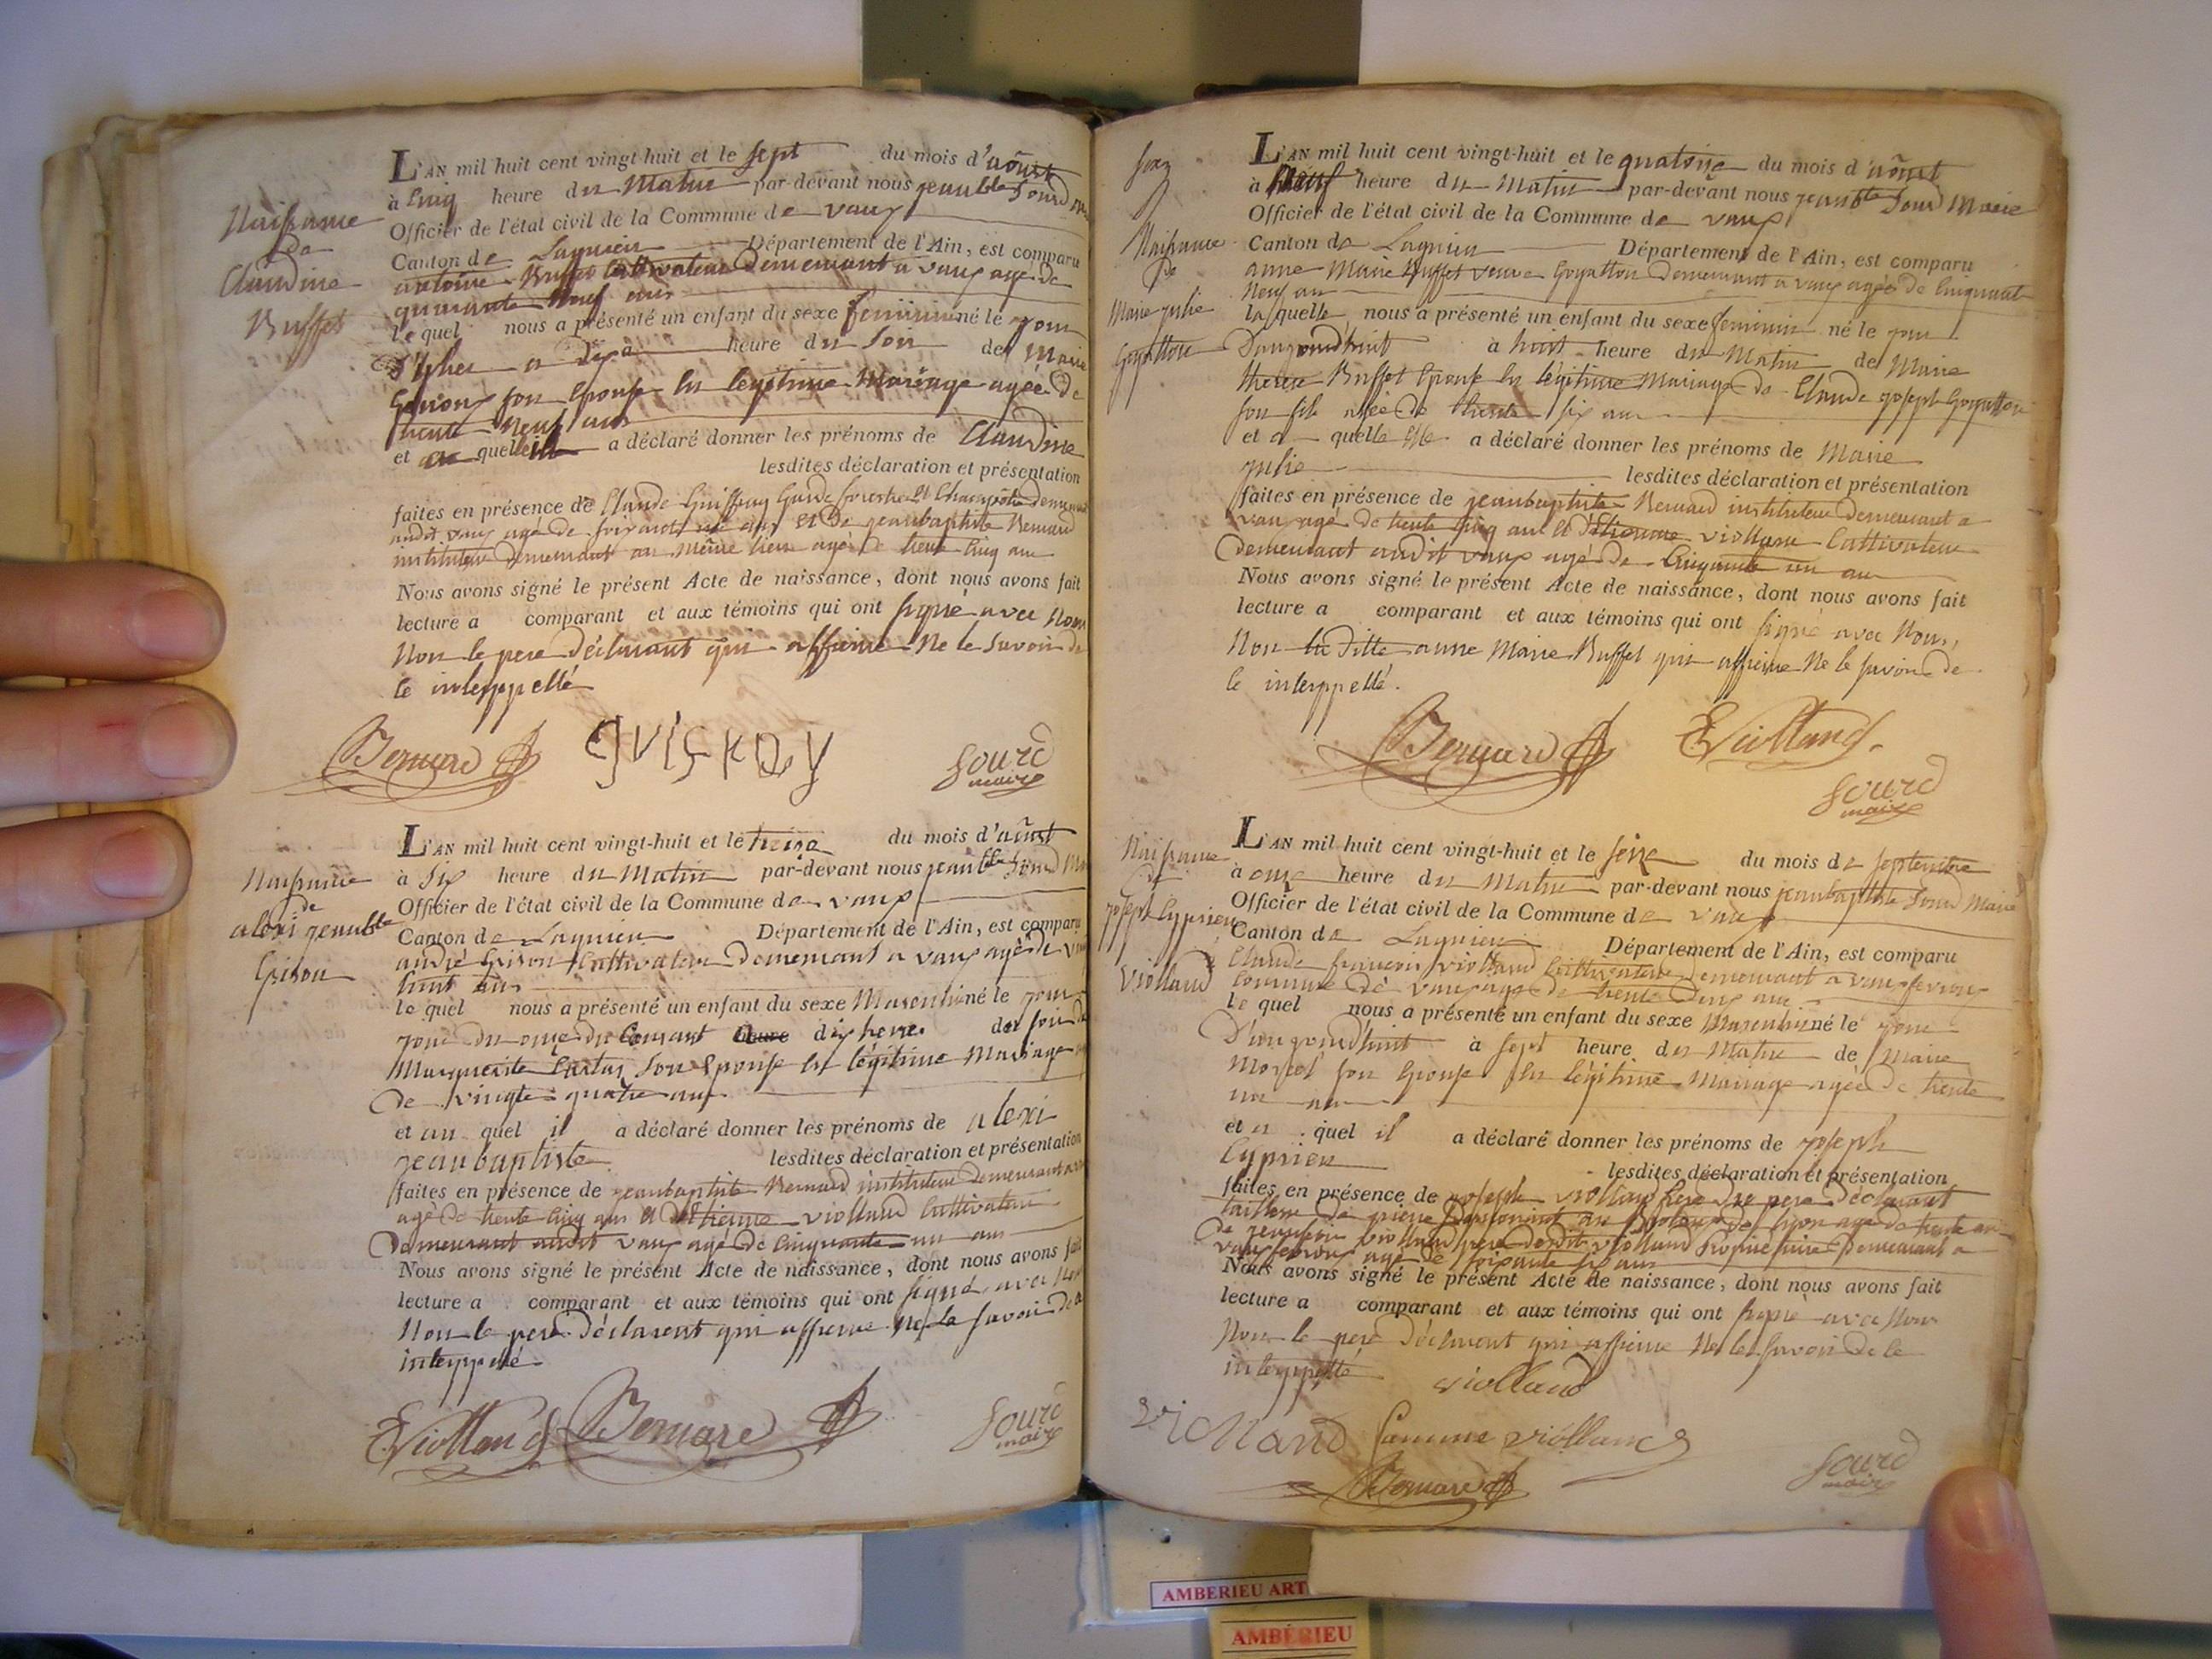 Naissance
de
Claudine
Buffet
L'AN mil huit cent vingt-huit et le sept du mois d'aoust
à cinq heure du Matin par-devant nous jean bte Sourd
Officier de l'état civil de la Commune de vaux
Canton de Lagnieu Département de l'Ain, est comparu
antoine Buffet Cultivateur Demeurant a vaux agé de
quarante Neuf ans
le quel nous a présenté un enfant du sexe feminin né le jour
D'hier a dix heure du Soir de Marie
son Epouse En legitime Mariage agée de
trente Neuf ans
et a quelle il a déclaré donner les prénoms de Claudine
lesdites déclaration et présentation
faites en présence de Claude Guiffray Garde forestier Et Champêtre
audit vaux agé de soixante ans Et De jeanbaptiste Bernard
instituteur Demeurant au même lieu agé de trente Cinq ans
Nous avons signé le présent Acte de naissance, dont nous avons fait
lecture a comparant et aux témoins qui ont signé avec Nous
Non le pere Déclarant qui affirme Ne le Savoir de
le interppellé
Bernard Sourd
maire
Naissance
de
alexi jeanbte
Grison
L'AN mil huit cent vingt-huit et le treize du mois d'aoust
à Six heure du Matin par-devant nous jeanbte Sourd
Officier de l'état civil de la Commune de vaux
Canton de Lagnieu Département de l'Ain, est comparu
andré Grison Cultivateur Demeurant a vaux agé de
huit ans
le quel nous a présenté un enfant du sexe Masculin né le jour
jour du onze du Courant heure dix heure du soir
Marguerite son Epouse En légitime Mariage
De vingte quatre ans
et au quel il a déclaré donner les prénoms de alexi
jeanbaptiste lesdites déclaration et présentation
faites en présence de jeanbaptiste Bernard instituteur Demeurant
agé de trente Cinq ans Et d'Etienne violland Cultivateur
Demeurant audit vaux agé de Cinquante un ans
Nous avons signé le présent Acte de naissance, dont nous avons fait
lecture a comparant et aux témoins qui ont signé avec Nous
Non le pere Déclarent qui affirme Ne Le Savoir de
interppellé
E Violland Bernard Sourd
maire
Naissance
de
Marie julie
Goyatton
L'AN mil huit cent vingt-huit et le quatorze du mois d'aoust
à Neuf heure du Matin par-devant nous jeanbte Sourd Maire
Officier de l'état civil de la Commune de vaux
Canton de Lagnieu Département de l'Ain, est comparu
anne Marie Buffet veuve Goyatton demeurant a vaux agée de Cinquante
Neuf ans
la quelle nous a présenté un enfant du sexe feminin né le jour
D'aujourd'huit à huit heure du Matin de Marie
therese Buffet Epouse En légitime Mariage de Claude joseph Goyatton
son fils agée de trente six ans
et a quelle Elle a déclaré donner les prénoms de Marie
julie lesdites déclaration et présentation
faites en présence de jeanbaptiste Bernard instituteur Demeurant a
vaux agé de trente Cinq ans Et d'Etienne viollane Cultivateur
demeurant audit vaux agé de Cinquante un ans
Nous avons signé le présent Acte de naissance, dont nous avons fait
lecture a comparant et aux témoins qui ont signé avec Nous,
Non la ditte anne Marie Buffet qui affirme Ne le savoir de
le interppellé.
Bernard E Violland
Sourd
maire
Naissance
de
joseph Cyprien
Violland
L'AN mil huit cent vingt-huit et le seize du mois de septembre
à onze heure du Matin par-devant nous jeanbaptiste Sourd Maire
Officier de l'état civil de la Commune de vaux
Canton de Lagnieu Département de l'Ain, est comparu
Claude françois violland Cultivateur Demeurant a vaux fevroux
Commune de vaux agé de trente Deux ans
le quel nous a présenté un enfant du sexe Masculin né le jour
D'aujourd'huit à sept heure du Matin de Marie
Morcel son Epouse En légitime Mariage agée de trente
un ans
et a quel il a déclaré donner les prénoms de joseph
Cyprien lesdites déclaration et présentation
faites en présence de joseph violland frere du pere Déclarant
tailleur de pierre agé de trente
violland pere dudit violland Propriétaire Demeurant a
vaux fevroux agé de soixante six ans
Nous avons signé le présent Acte de naissance, dont nous avons fait
lecture a comparant et aux témoins qui ont signé avec Nous
Non le pere Déclarent qui affirme Ne le savoir de le
interppellé
violland
violland violland
Bernard Sourd
maire
AMBERIEU ART
AMBÉRIEU